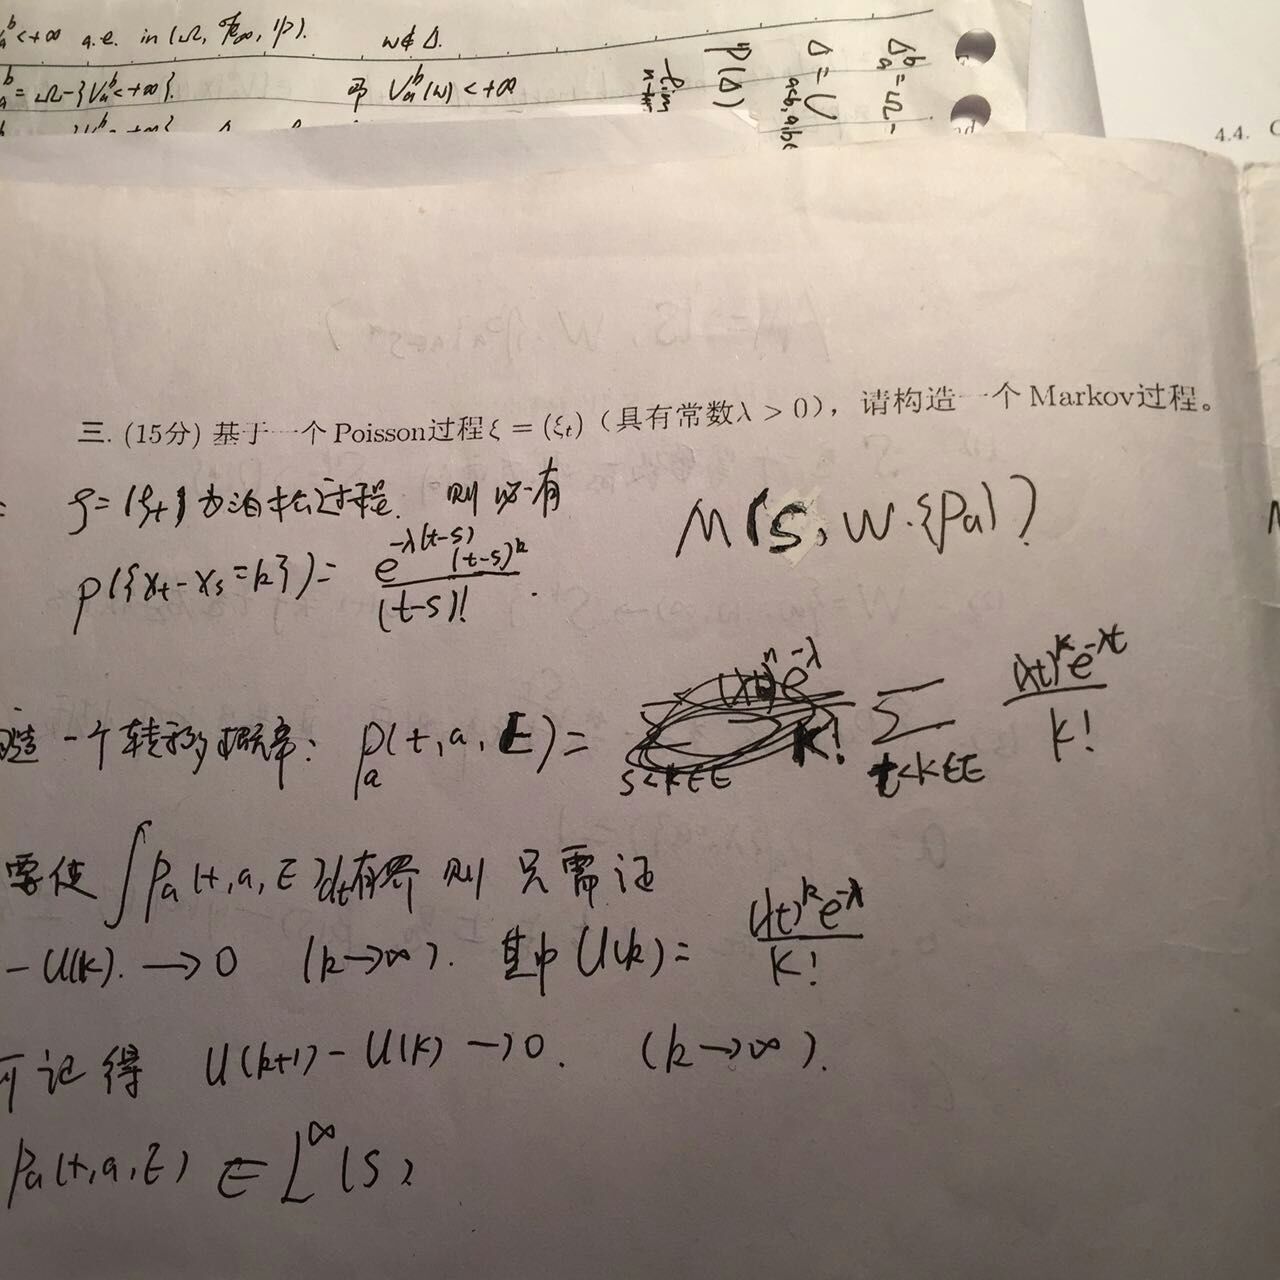 b/a <+∞ a.e. in (Ω, F∞, P). w∉Δ.
b/a = Ω-{V_a^b<+∞}. 即 V_a^b(w) <+∞
Δ_a^b = Ω-
Δ = ∪
a<b, a,b∈
P(Δ)
lim
4.4.
三. (15分) 基于一个 Poisson过程ξ = (ξt)(具有常数λ > 0),请构造一个 Markov过程。
ξ=(ξt) 为泊松过程. 则必有
M(S, W.{Pa)?
P({xt-xs=k})= e^{-λ(t-s)}(t-s)^k / (t-s)! .
造一个转移概率: Pa(t,a,E)= Σ_{t<k∈E} (λt)^k e^{-λt} / k!
要使 ∫Pa(t,a,E)dt有界 则 只需证
-U(k). →0 (k→∞). 其中 U(k)= (λt)^k e^{-λ} / k!
可记得 U(k+1)-U(k) →0. (k→∞).
Pa(t,a,E) ∈ L^∞(S)